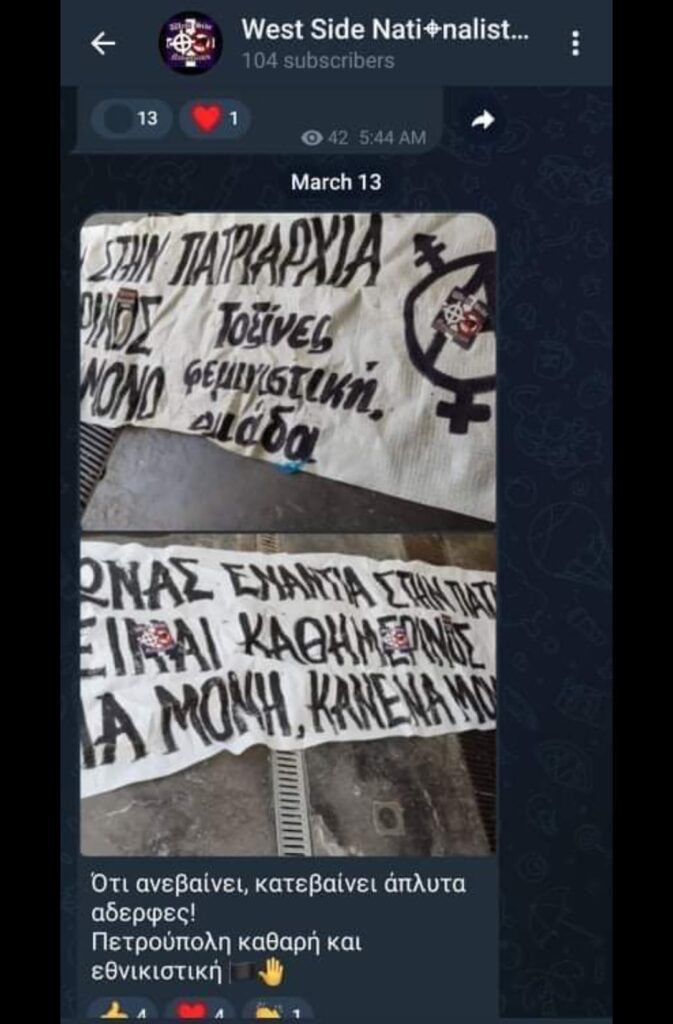 West Side Nati⌖nalist...
104 subscribers
13
1
42 5:44 AM
March 13
ΣΤΗΝ ΠΑΤΡΙΑΡΧΙΑ
ΡΙΝΟΣ Τοξίνες
ΜΟΝΟ φεμινιστική
ομάδα
ΩΝΑΣ ΕΝΑΝΤΙΑ ΣΤΗΝ ΠΑΤ
ΕΙΝΑΙ ΚΑΘΗΜΕΡΙΝΟΣ
ΙΑ ΜΟΝΗ, ΚΑΝΕΝΑ ΜΟ
Ότι ανεβαίνει, κατεβαίνει άπλυτα
αδερφες!
Πετρούπολη καθαρή και
εθνικιστική 🏴🤚
4
4
1